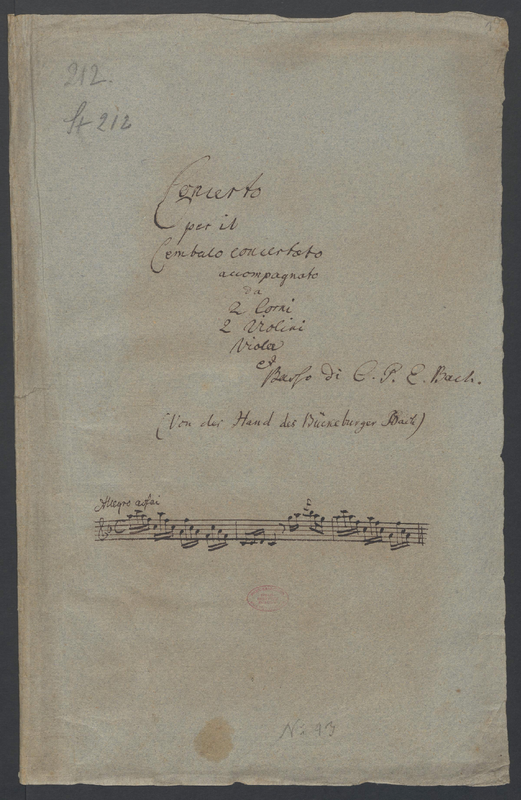 212.
St 212
Concerto
per il
Cembalo concertato
accompagnato
da
2 Corni
2 Violini
Viola
et
Basso di C. P. E. Bach.
(Von der Hand des Bückeburger Bach)
Allegro assai